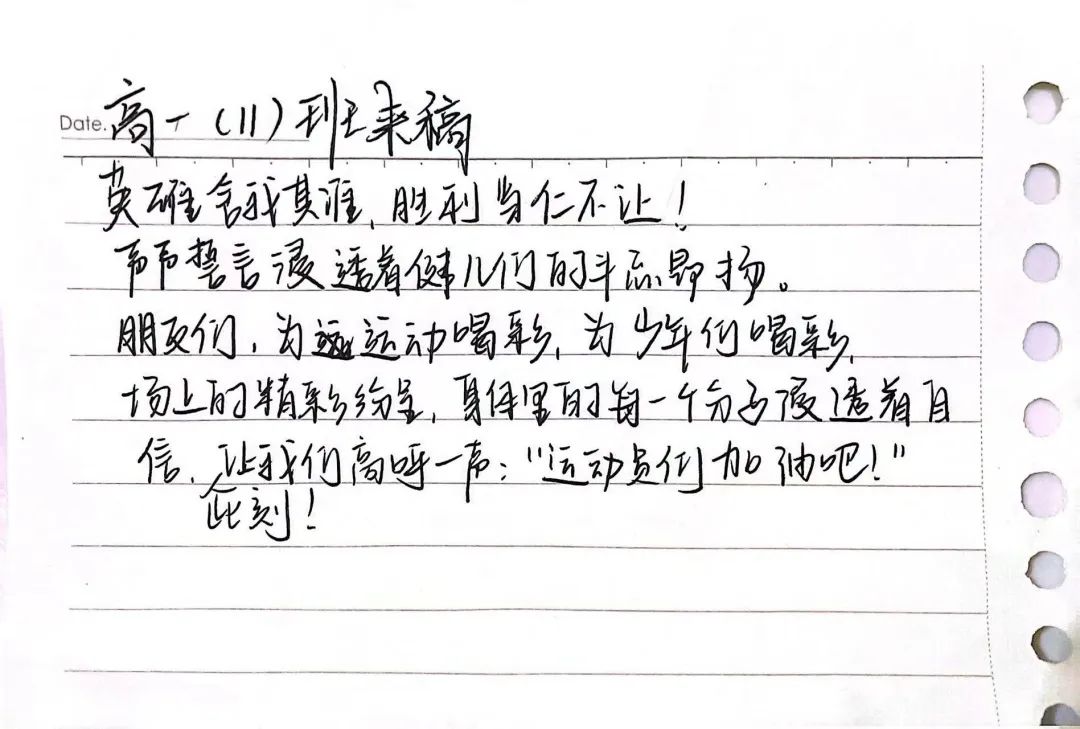 Date. 高一（11）班来稿
英雄舍我其谁，胜利当仁不让！
声声誓言浸透着健儿们的斗志昂扬。
朋友们，为运动喝彩，为少年们喝彩，
场上的精彩纷呈，身体里的每一个分子浸透着自
信，让我们高呼一声：“运动员们加油吧！”
此刻！